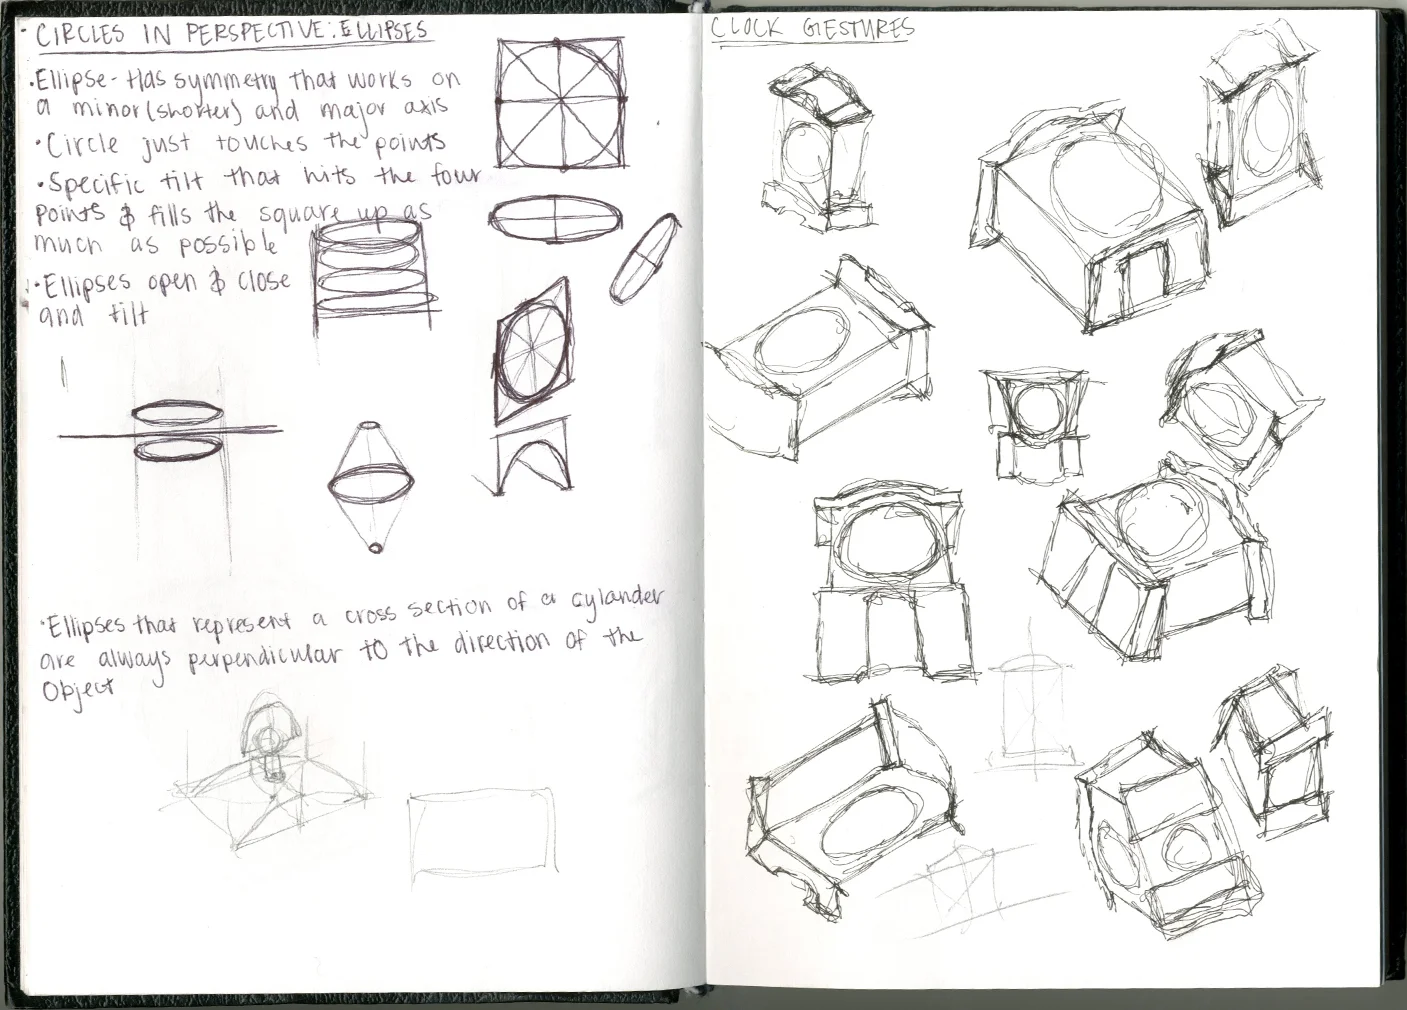 · CIRCLES IN PERSPECTIVE: ELLIPSES
·Ellipse - Has symmetry that works on
a minor (shorter) and major axis
·Circle just touches the points
·Specific tilt that hits the four
points & fills the square up as
much as possible
·Ellipses open & close
and tilt
·Ellipses that represent a cross section of a cylander
are always perpendicular to the direction of the
Object
CLOCK GESTURES